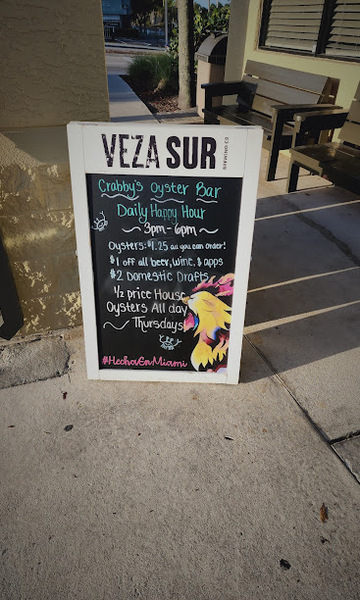 VEZA SUR
BREWING CO
Crabby's Oyster Bar
Daily Happy Hour
~ 3pm - 6pm ~
Oysters: $1.25 as you can order!
$1 off all beer, wine, & apps
$2 Domestic Drafts
1/2 price House
Oysters All day
~ Thursdays
#HechoEnMiami